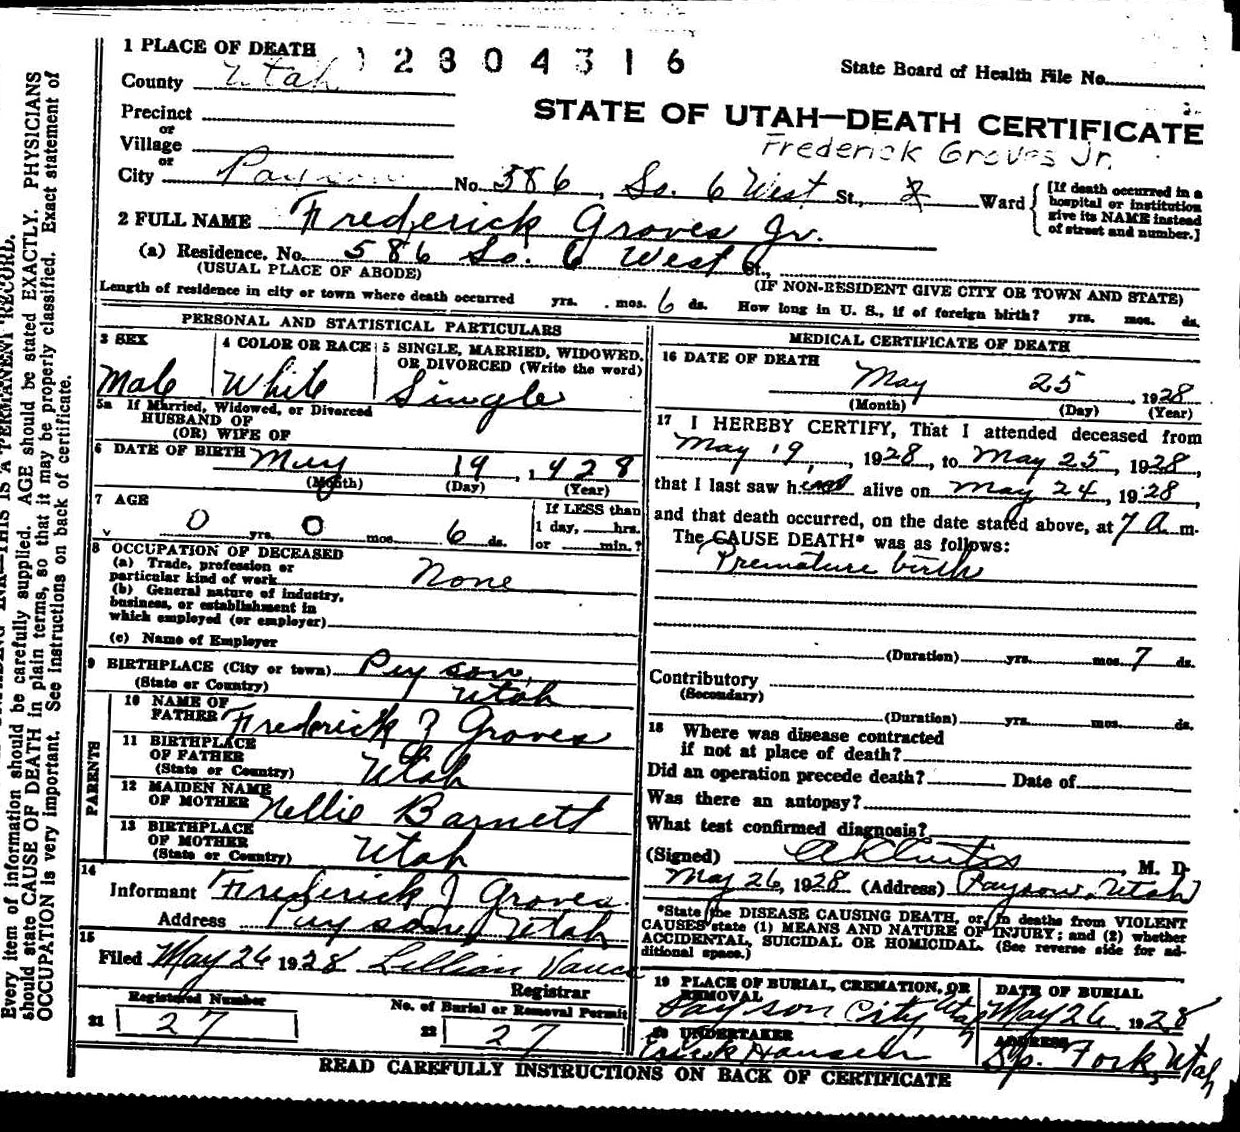 1 PLACE OF DEATH
2804316
State Board of Health File No.
County Utah
STATE OF UTAH—DEATH CERTIFICATE
Precinct
or
Frederick Groves Jr.
Village
or
City Payson No. 586 So. 6 West St., Ward
[If death occurred in a hospital or institution give its NAME instead of street and number.]
2 FULL NAME Frederick Groves Jr.
(a) Residence. No. 586 So. 6 West St.,
(USUAL PLACE OF ABODE) (IF NON-RESIDENT GIVE CITY OR TOWN AND STATE)
Length of residence in city or town where death occurred yrs. mos. 6 ds. How long in U. S., if of foreign birth? yrs. mos. ds.
PERSONAL AND STATISTICAL PARTICULARS
3 SEX
Male
4 COLOR OR RACE
White
5 SINGLE, MARRIED, WIDOWED,
OR DIVORCED (Write the word)
Single
5a If Married, Widowed, or Divorced
HUSBAND OF
(OR) WIFE OF
6 DATE OF BIRTH May 19, 1928
(Month) (Day) (Year)
7 AGE
0 yrs. 0 mos. 6 ds.
If LESS than
1 day, hrs.
or min.?
8 OCCUPATION OF DECEASED
(a) Trade, profession or
particular kind of work None
(b) General nature of industry,
business, or establishment in
which employed (or employer)
(c) Name of Employer
9 BIRTHPLACE (City or town) Payson,
(State or Country) Utah
PARENTS
10 NAME OF
FATHER Frederick J Groves
11 BIRTHPLACE
OF FATHER
(State or Country) Utah
12 MAIDEN NAME
OF MOTHER Nellie Barnett
13 BIRTHPLACE
OF MOTHER
(State or Country) Utah
14
Informant Frederick J Groves
Address Payson, Utah
15
Filed May 26 1928 Lillian Vance
Registrar
Registered Number
21 27
No. of Burial or Removal Permit
22 27
MEDICAL CERTIFICATE OF DEATH
16 DATE OF DEATH
May 25 1928
(Month) (Day) (Year)
17 I HEREBY CERTIFY, That I attended deceased from
May 19, 1928, to May 25, 1928,
that I last saw him alive on May 24, 1928,
and that death occurred, on the date stated above, at 7 a m.
The CAUSE DEATH* was as follows:
Premature birth
(Duration) yrs. mos. 7 ds.
Contributory
(Secondary)
(Duration) yrs. mos. ds.
18 Where was disease contracted
if not at place of death?
Did an operation precede death? Date of
Was there an autopsy?
What test confirmed diagnosis?
(Signed) A K Curtis, M. D.
May 26, 1928 (Address) Payson, Utah
*State the DISEASE CAUSING DEATH, or, in deaths from VIOLENT
CAUSES state (1) MEANS AND NATURE OF INJURY; and (2) whether
ACCIDENTAL, SUICIDAL OR HOMICIDAL. (See reverse side for ad-
ditional space.)
19 PLACE OF BURIAL, CREMATION, OR
REMOVAL
Payson City, Utah
DATE OF BURIAL
May 26 1928
20 UNDERTAKER
Hansen
ADDRESS
Sp. Fork, Utah
READ CAREFULLY INSTRUCTIONS ON BACK OF CERTIFICATE
INK—THIS IS A PERMANENT RECORD.
Every item of information should be carefully supplied. AGE should be stated EXACTLY. PHYSICIANS
should state CAUSE OF DEATH in plain terms, so that it may be properly classified. Exact statement of
OCCUPATION is very important. See instructions on back of certificate.